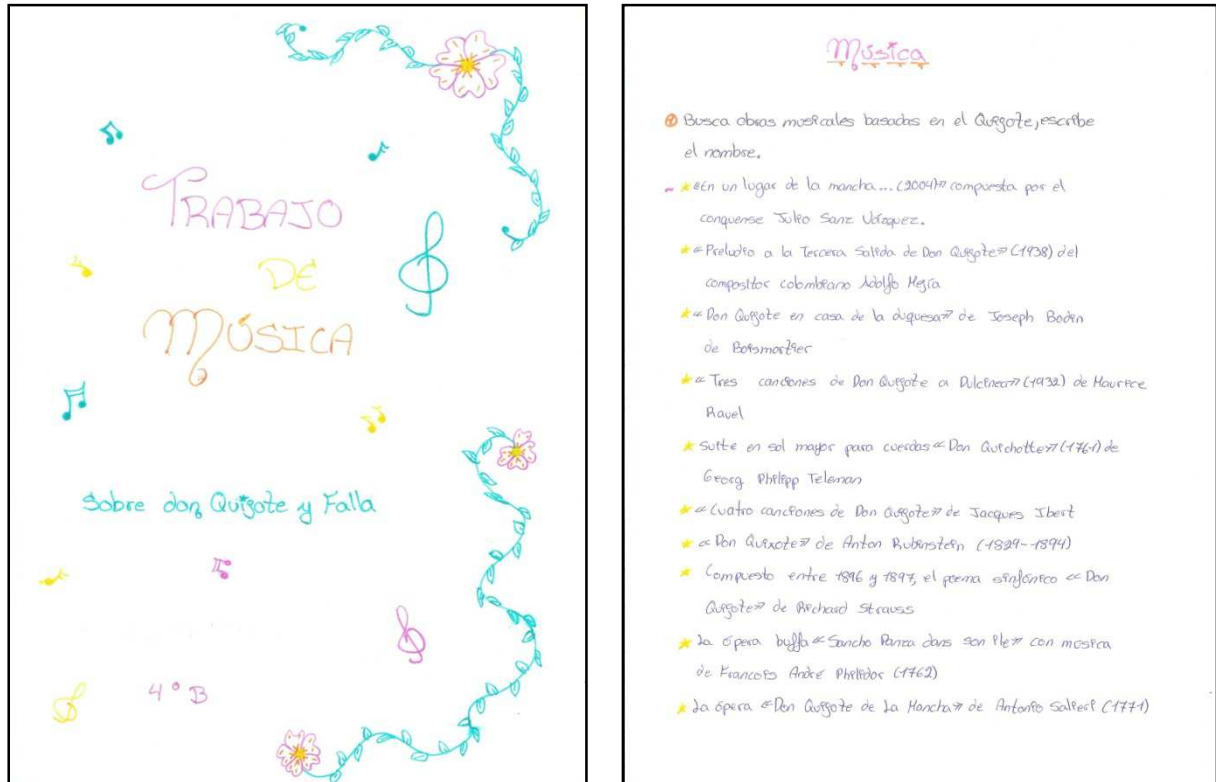 TRABAJO
DE
MÚSICA
Sobre don Quijote y Falla
4º B
Música
1 Busca obras musicales basadas en el Quijote, escribe
el nombre.
~ ★ «En un lugar de la mancha... (2004)» compuesta por el
conquense Julio Sanz Vázquez.
★ «Preludio a la Tercera Salida de Don Quijote» (1938) del
compositor colombiano Adolfo Mejía
★ «Don Quijote en casa de la duquesa» de Joseph Bodin
de Boismortier
★ «Tres canciones de Don Quijote a Dulcinea» (1932) de Maurice
Ravel
★ Suite en sol mayor para cuerdas «Don Quichotte» (1761) de
Georg Philipp Teleman
★ «Cuatro canciones de Don Quijote» de Jacques Ibert
★ «Don Quixote» de Anton Rubinstein (1829--1894)
★ Compuesto entre 1896 y 1897, el poema sinfónico «Don
Quijote» de Richard Strauss
★ La ópera buffa «Sancho Panza dans son Ile» con música
de Francois André Philidor (1762)
★ La ópera «Don Quijote de La Mancha» de Antonio Salieri (1771)